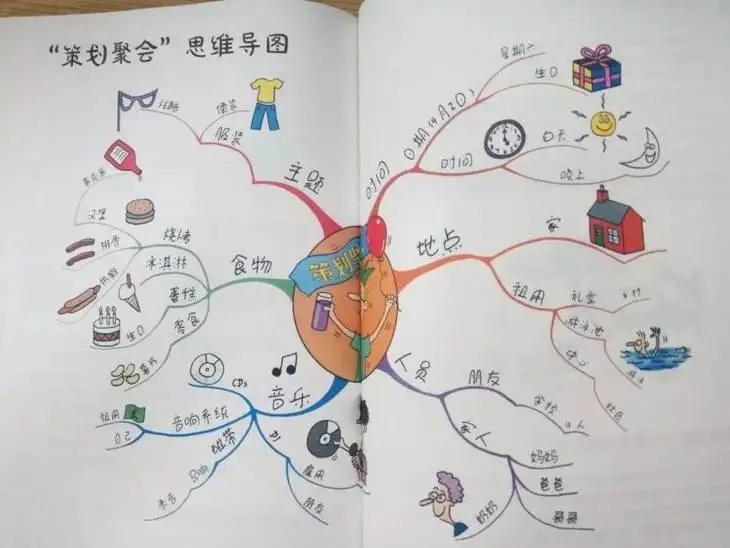 “策划聚会”思维导图
便装
服装
主题
食物
烧烤
汉堡
排骨
热狗
冰淇淋
蛋糕
生日
零食
薯片
音乐
CDs
音响系统
租用
自己
磁带
DJ
雇用
朋友
策划
时间
日期(4月20)
星期六
生日
时间
白天
晚上
地点
家
租用
礼堂
游泳池
人员
朋友
学校
家人
妈妈
爸爸
哥哥
奶奶